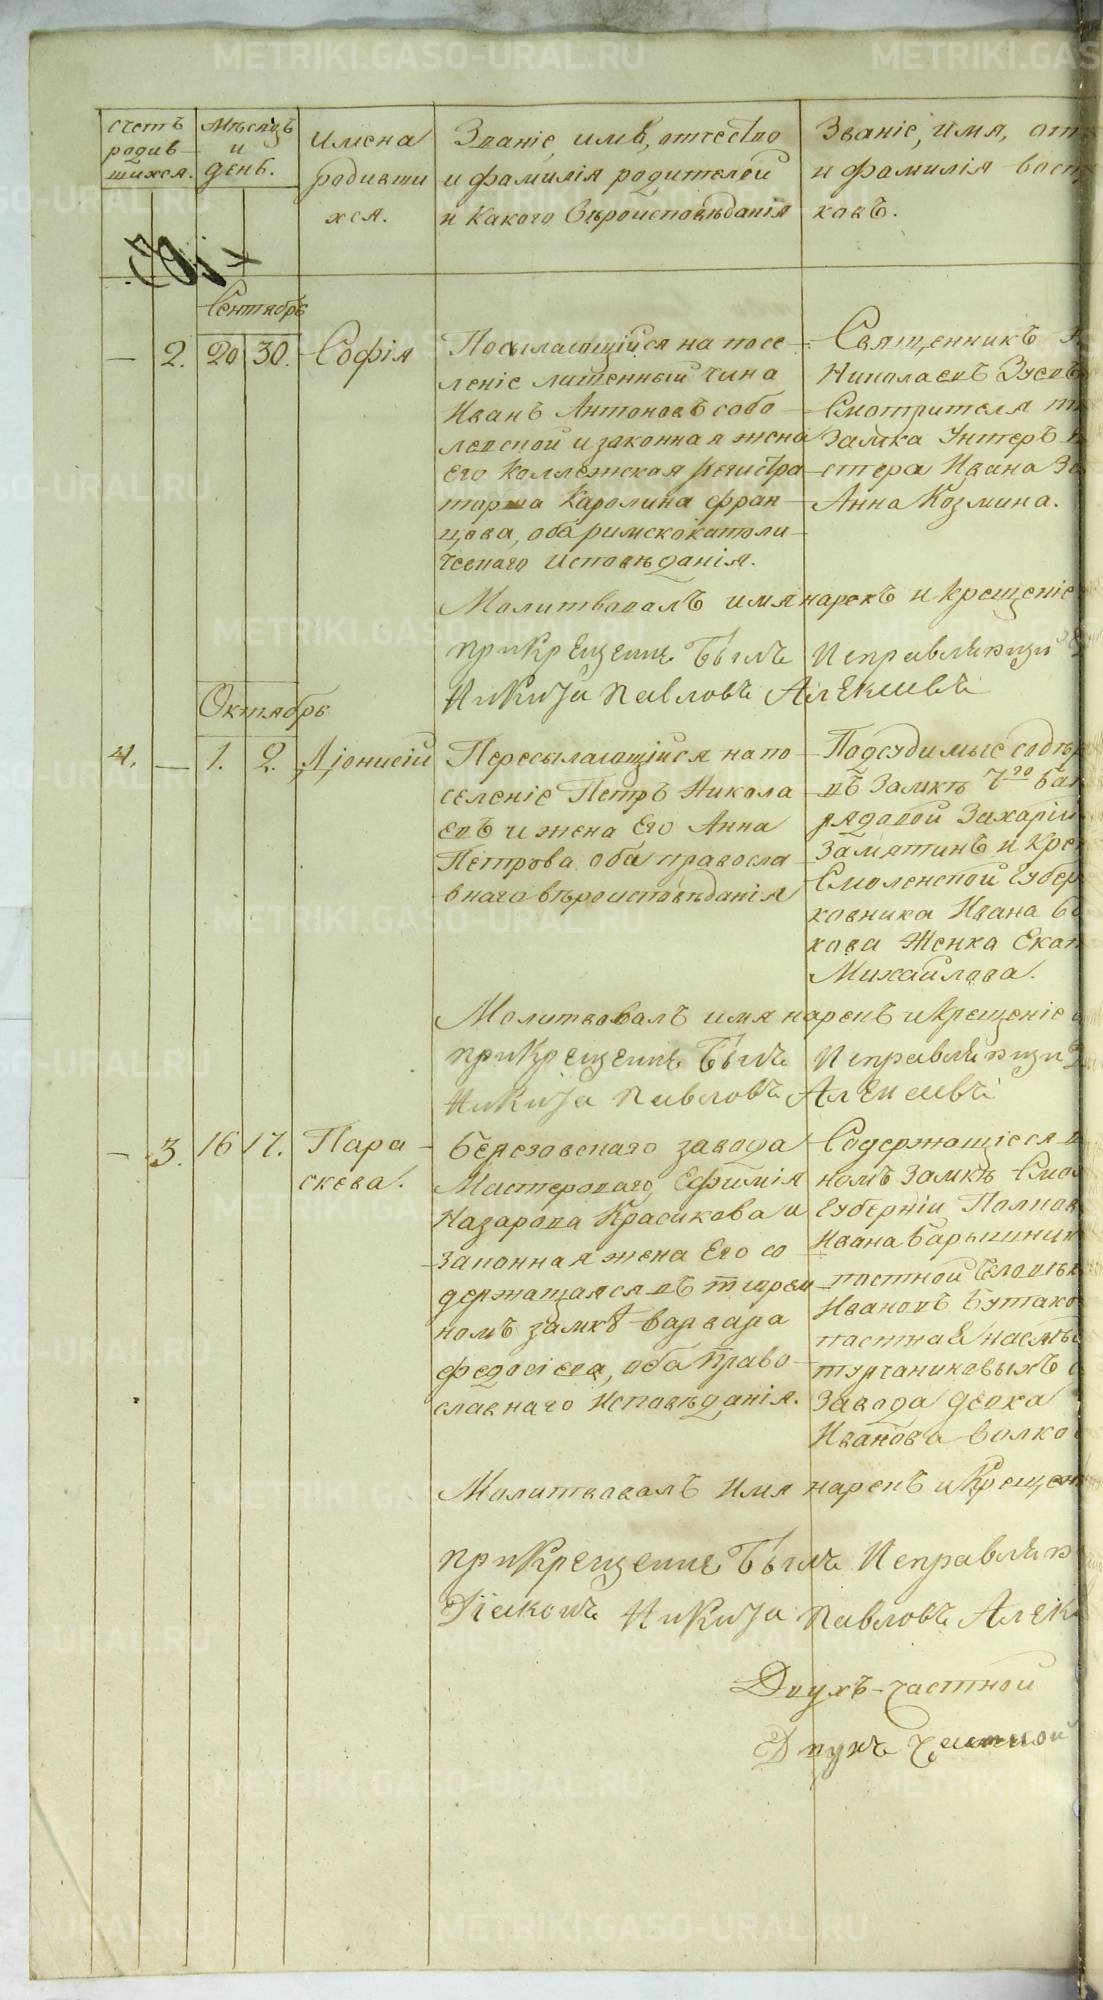 счетъ родив-шихся.
Мѣсяцъ и день.
Имена родивши хся.
Званіе, имя, отчество и фамилія родителей и какого вѣроисповѣданія
Званіе, имя, от
и фамилія восп
ковъ.
Сентябрь
— 2. 20 30. Софія
Посылающійся на посе-
леніе лишенный чина
Иванъ Антоновъ собо-
левской и законная жена
его Коллежская регистра
торша Каролина фран-
цова, оба римскокатоли-
ческаго исповѣданія.
Священникъ
Николаевъ Зуевъ
Смотрителя
Замка Унтеръ
стера Ивана
Анна Козмина.
Молитвовалъ имя нарекъ и крещеніе
при крещении былъ Исправляющи
Никита Павловъ Алексеевъ
Октябрь
4. — 1. 2. Діонисій
Пересылающійся на по-
селеніе Петръ Никола
евъ и жена его Анна
Петрова оба правосла-
внаго вѣроисповѣданія
Подсудимые содер
въ Замкѣ 7го бат
рядовой Захарій
Замятинъ и Крес
Смоленской Губер
ковника Ивана
кова Женка Екат
Михайлова.
Молитвовалъ имя нарекъ и крещеніе
при крещении былъ Исправляющи
Никита Павловъ Алексеевъ
— 3. 16 17. Пара-
скева.
Березовскаго завода
Мастероваго Ефимія
Назарова Красикова и
законная жена его со
держащаяся въ тюрем
номъ замкѣ варвара
федосіева, оба право-
славнаго исповѣданія.
Содержащіеся в
номъ Замкѣ Смол
Губерніи Полков
Ивана Барышник
постной человѣк
Ивановъ Бутако
постная наслѣд
турчаниковыхъ
Завода девка
Иванова волко
Молитвовалъ Имя нарекъ и Крещен
при крещении былъ Исправляю
Діаконъ Никита Павловъ Алек
Двухъ-частной
Двухъ частной
METRIKI.GASO-URAL.RU